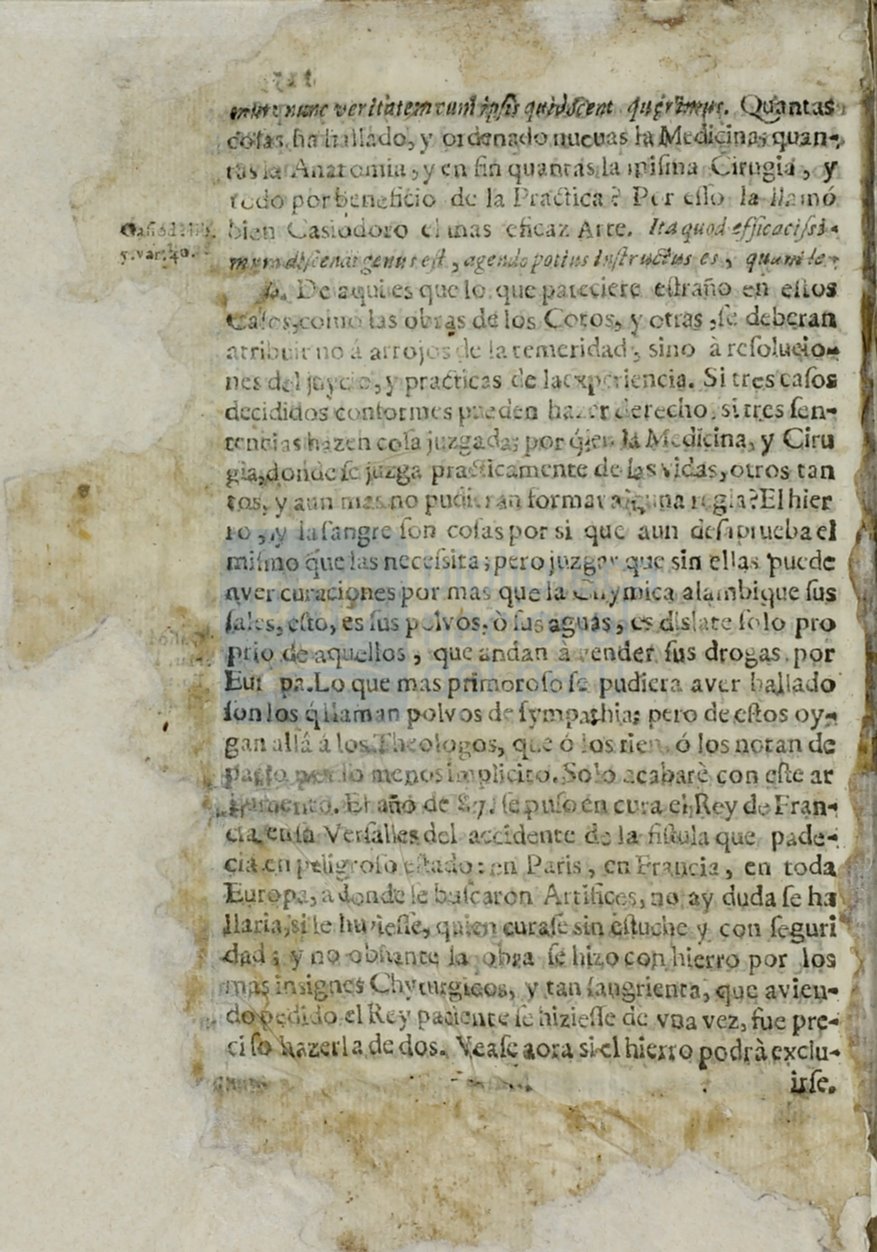 nunc veritatem cum ipsis Quantas
cosas ha hallado, y ordenado nueuas la Medicina, quan-
tas la Anatomia, y en fin quantas la misma Cirugia, y
todo por beneficio de la Practica? Per esso la llamó
bien Casiodoro el mas eficaz Arte. Ita quod efficacissi-
mum discendi genus est, agendo potius instructus es, quam le-
De aqui es que lo que pareciere estraño en estos
Casos, como las obras de los Cotos, y otras, se deberan
atribuir no á arrojos de la temeridad, sino à resolucio-
nes del juycio, y practicas de la experiencia. Si tres casos
decididos conformes pueden hazer derecho, si tres sen-
tencias hazen cosa juzgada; por q̃ en la Medicina, y Ciru
gia, donde se juzga practicamente de las vidas, otros tan
tos, y aun mas no pudieran formar alguna regla? El hier
ro, y la sangre son cosas por si que aun desaprueba el
mismo que las necessita; pero juzgar que sin ellas puede
aver curaciones por mas que la Chymica alambique sus
sales, esto, es sus polvos, ò sus aguas, es dislate solo pro
prio de aquellos, que andan à vender sus drogas por
Europa. Lo que mas primoroso se pudiera aver hallado
son los q̃ llaman polvos de sympathia; pero de estos oy-
gan allá á los Theologos, que ó los rien, ó los notan de
pacto por lo menos implicito. Solo acabarè con este ar
gumento. El año de 87. se puso en cura el Rey de Fran-
cia en su Versalles del accidente de la fistula que pade-
cia en peligroso estado: en Paris, en Francia, en toda
Europa, a donde se buscaron Artifices, no ay duda se ha
llaria, si le huviesse, quien curase sin estuche y con seguri
dad; y no obstante la obra se hizo con hierro por los
mas insignes Chyrurgicos, y tan sangrienta, que avien-
do pedido el Rey paciente se hiziesse de vna vez, fue pre-
ciso hazerla de dos. Vease aora si el hierro podrà exclu-
irse.